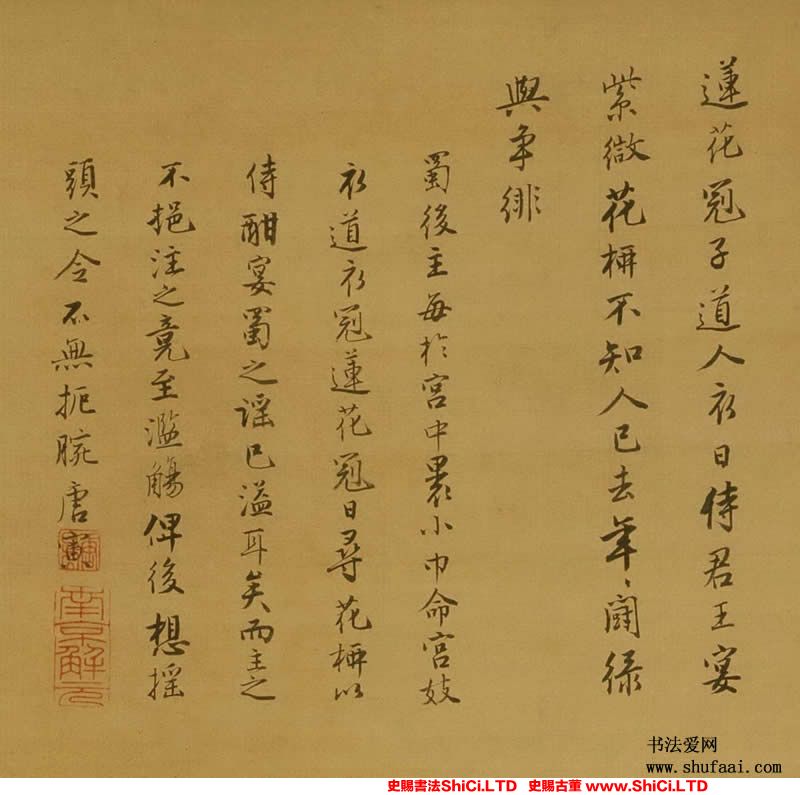 蓮花冠子道人衣日侍君王宴
紫微花柳不知人已去年〻鬪緑
與爭緋
蜀後主每於宮中裹小巾命宮妓
衣道衣冠蓮花冠日尋花柳以
侍酣宴蜀之謡已溢耳矣而主之
不挹注之竟至濫觴俾後想摇
頭之令不無扼腕唐寅
南京解元
书法爱网
www.shufaai.com
史賜書法ShiCi.LTD 史賜古董 www.ShiCi.LTD